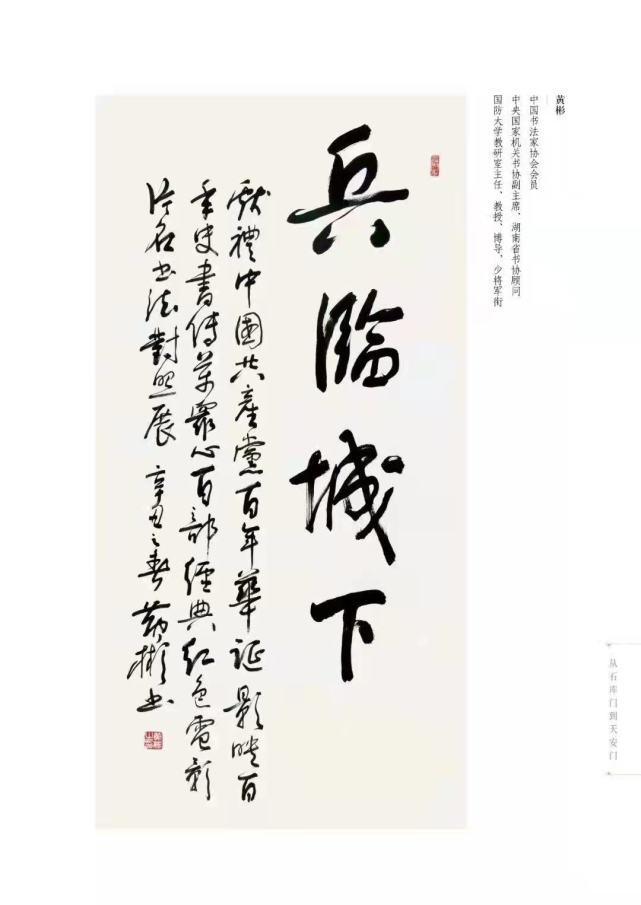 黄彬
中国书法家协会会员
中央国家机关书协副主席、湖南省书协顾问
国防大学教研室主任、教授、博导，少将军衔
兵臨城下
獻禮中國共產黨百年華誕影映百
年史書傳萬眾心百部經典紅色電影
片名书法對照展 辛丑之春黄彬书
从石库门到天安门